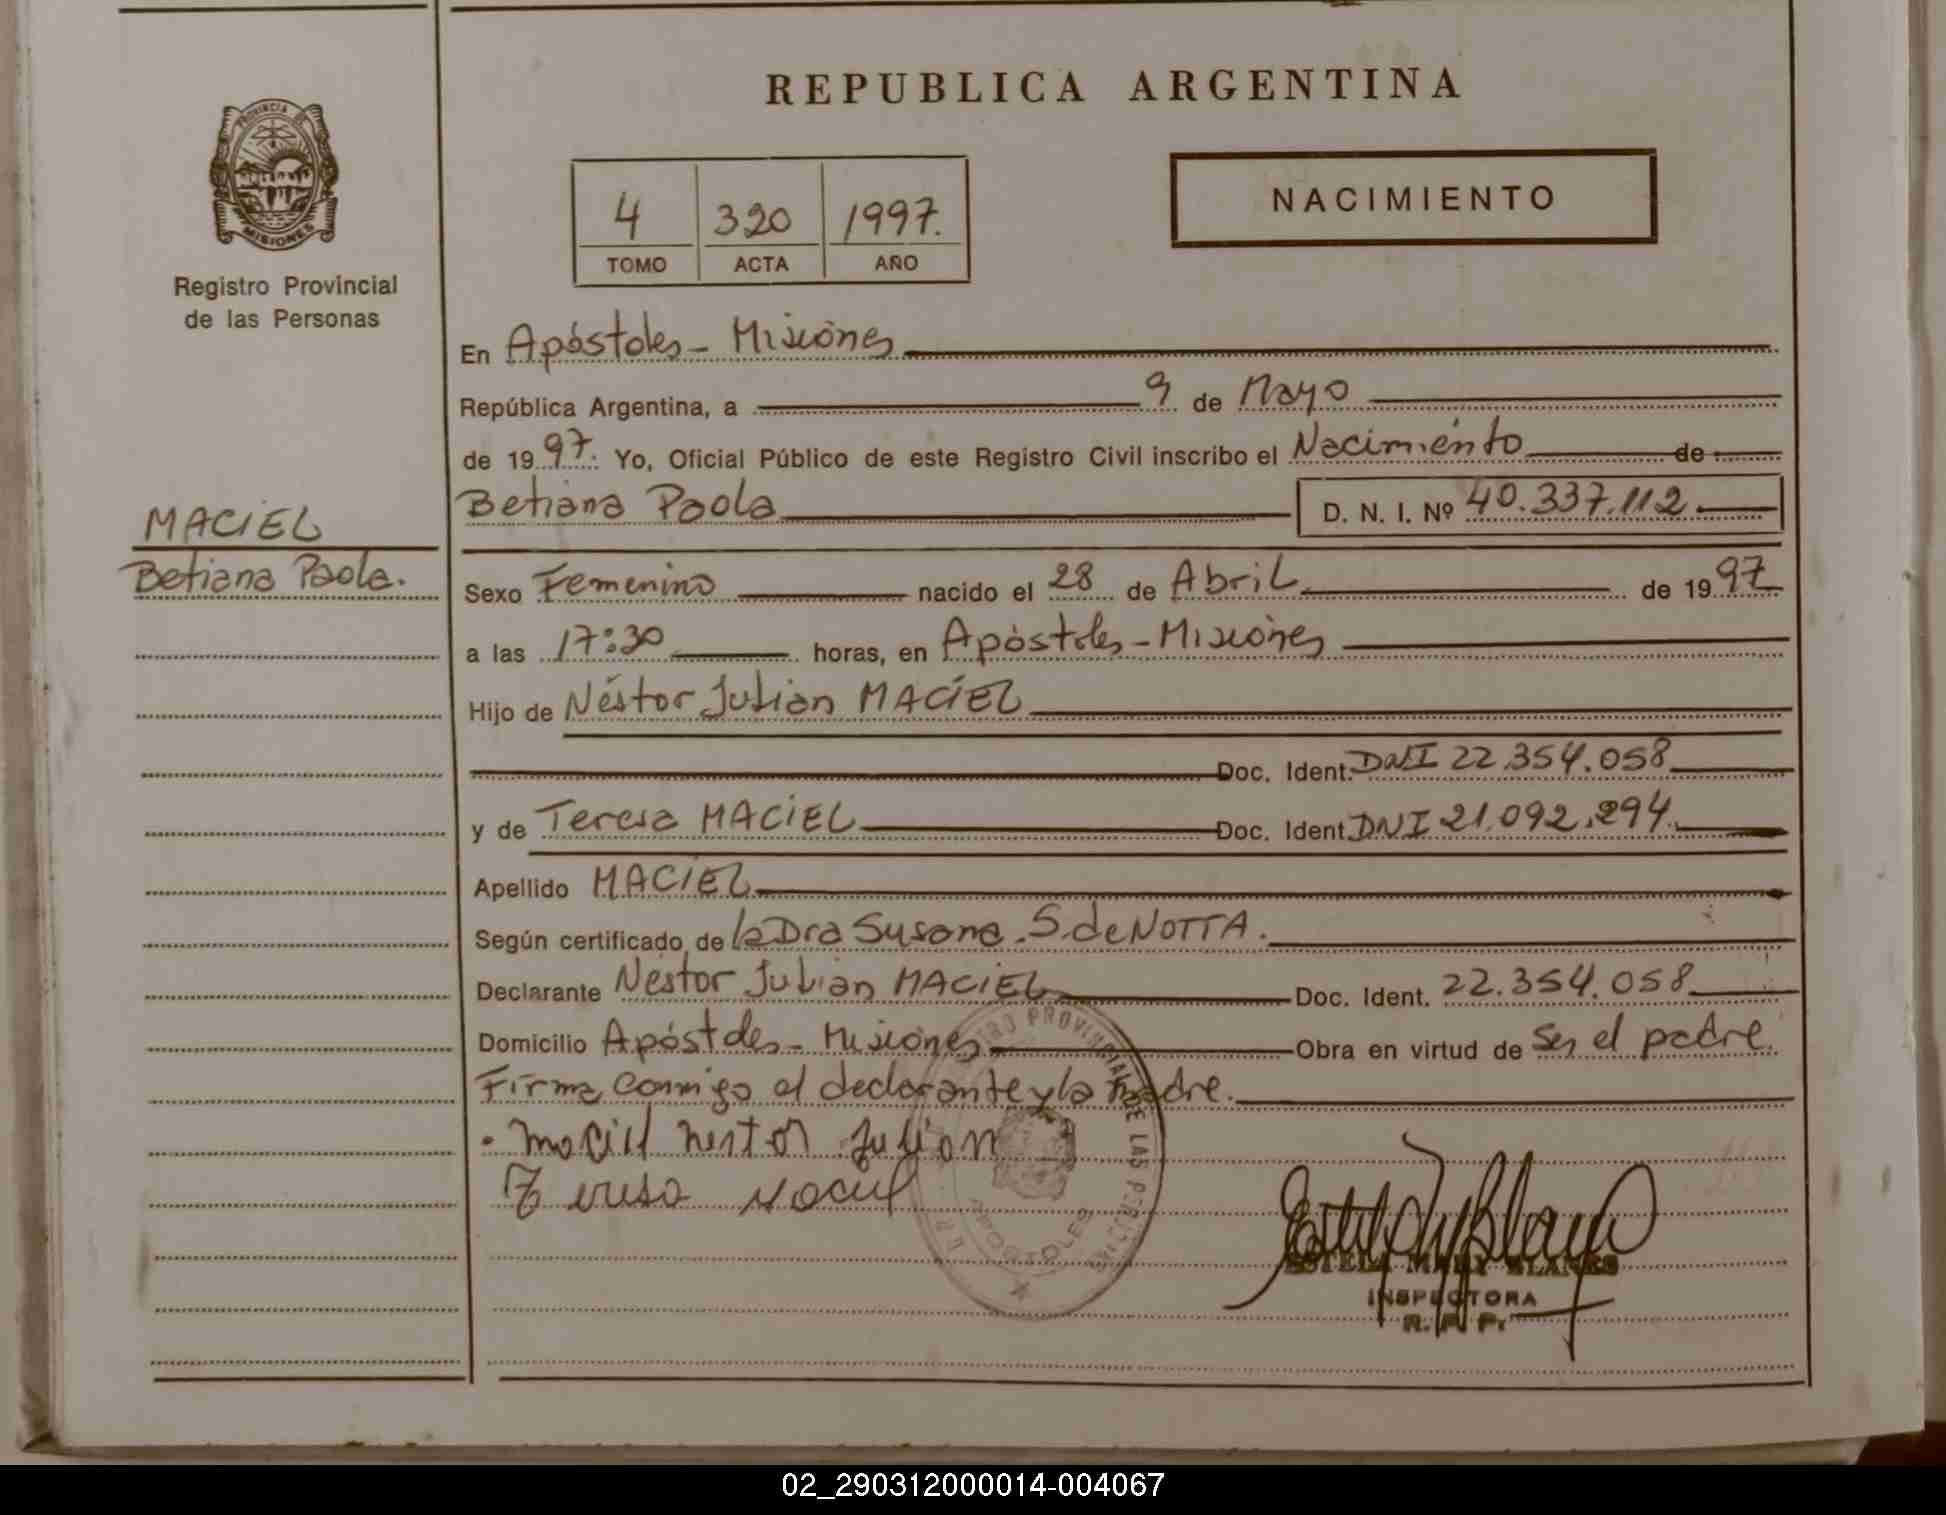 REPUBLICA ARGENTINA
PROVINCIA DE
MISIONES
Registro Provincial
de las Personas
4 320 1997.
TOMO ACTA AÑO
NACIMIENTO
En Apóstoles - Misiones
República Argentina, a 9 de Mayo
de 1997. Yo, Oficial Público de este Registro Civil inscribo el Nacimiento de
Betiana Paola D. N. I. Nº 40.337.112
MACIEL
Betiana Paola.
Sexo Femenino nacido el 28 de Abril de 1997
a las 17:30 horas, en Apóstoles - Misiones
Hijo de Néstor Julián MACIEL
Doc. Ident. DNI 22.354.058
y de Teresa MACIEL Doc. Ident. DNI 21.092.294
Apellido MACIEL
Según certificado de la Dra Susana. S. de NOTTA.
Declarante Néstor Julián MACIEL Doc. Ident. 22.354.058
Domicilio Apóstoles - Misiones Obra en virtud de Ser el padre.
Firma conmigo el declarante y la madre.
Maciel Nestor Julian
Teresa Maciel
PROVINCIAL DE LAS PERSONAS
APOSTOLES
INSPECTORA
R. P. P.
02_290312000014-004067